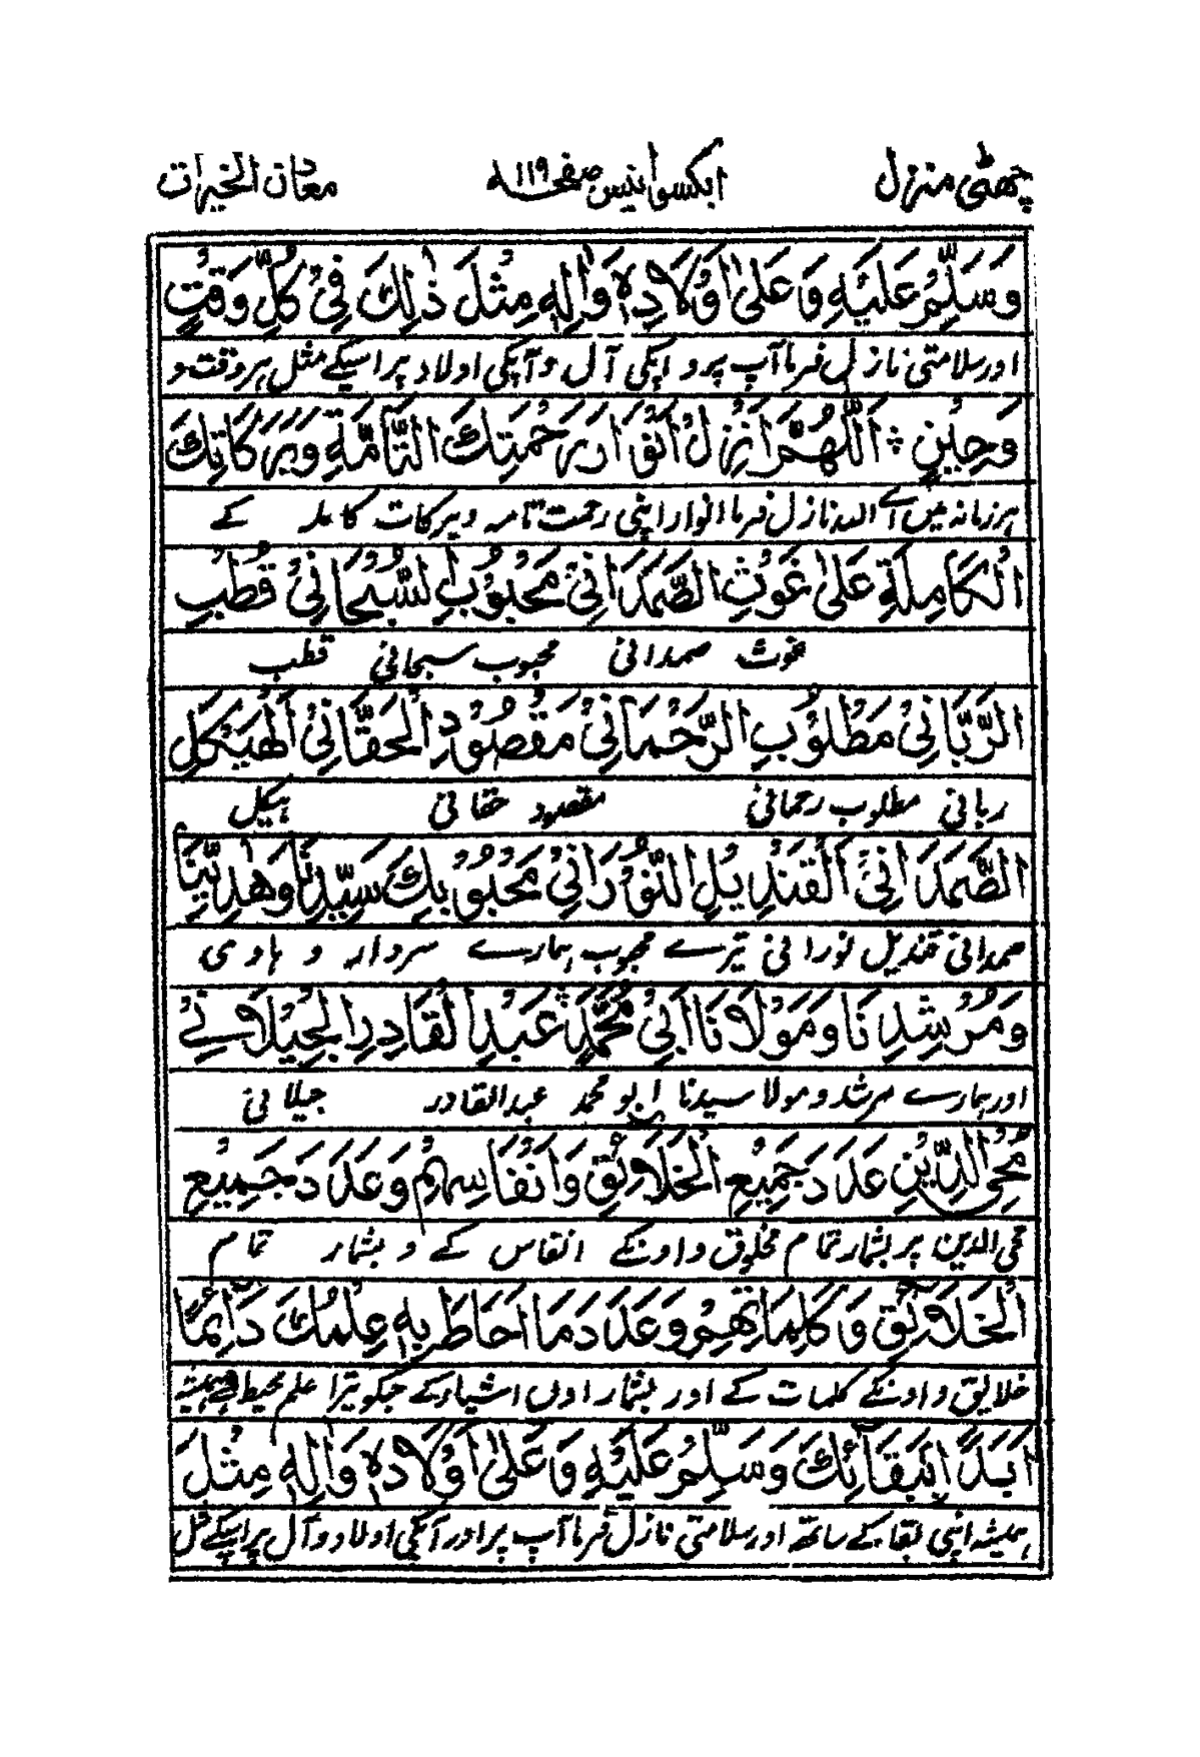 چھٹی منزل ایکسوانیس صفحہ ۱۱۹ معدن الخیرات
وَسَلِّمْ عَلَيْهِ وَعَلٰى اَوْلَادِهٖ وَاٰلِهٖ مِثْلَ ذٰلِكَ فِيْ كُلِّ وَقْتٍ
اور سلامتی نازل فرما آپ پر و آپکی آل و آپکی اولاد پر اسیکے مثل ہر وقت و
وَحِيْنٍ ؞ اَللّٰهُمَّ اَنْزِلْ اَنْوَارَ رَحْمَتِكَ التَّآمَّةِ وَبَرَكَاتِكَ
ہر زمانہ میں اے اللہ نازل فرما انوار اپنی رحمت تامہ و برکات کاملہ کے
الْكَامِلَةِ عَلٰى غَوْثِ الصَّمَدَانِيْ مَحْبُوْبِ السُّبْحَانِيْ قُطْبِ
غوث صمدانی محبوب سبحانی قطب
الرَّبَّانِيْ مَطْلُوْبِ الرَّحْمَانِيْ مَقْصُوْدِ الْحَقَّانِيْ الْهَيْكَلِ
ربانی مطلوب رحمانی مقصود حقانی ہیکل
الصَّمَدَانِيْ الْقَنْدِيْلِ النُّوْرَانِيْ مَحْبُوْبِكَ سَيِّدِنَا وَهَادِيْنَا
صمدانی قندیل نورانی تیرے محبوب ہمارے سردار و ہادی
وَمُرْشِدِنَا وَمَوْلَانَا اَبِيْ مُحَمَّدٍ عَبْدِ الْقَادِرِ الْجِيْلَانِيْ
اور ہمارے مرشد و مولا سیدنا ابو محمد عبدالقادر جیلانی
مُحْيِ الدِّيْنِ عَدَدَ جَمِيْعِ الْخَلَائِقِ وَاَنْفَاسِهِمْ وَعَدَدَ جَمِيْعِ
محی الدین پر بشمار تمام مخلوق و اونکے انفاس کے و بشمار تمام
الْخَلَائِقِ وَكَلِمَاتِهِمْ وَعَدَدَ مَا اَحَاطَ بِهٖ عِلْمُكَ دَآئِمًا
خلایق و اونکے کلمات کے اور بشمار اون اشیاء کے جسکو تیرا علم محیط ہے ہمیشہ
اَبَدًا بِبَقَآئِكَ وَسَلِّمْ عَلَيْهِ وَعَلٰى اَوْلَادِهٖ وَاٰلِهٖ مِثْلَ
ہمیشہ اپنی بقا کے ساتھ اور سلامتی نازل فرما آپ پر اور آپکی اولاد و آل پر اسیکے مثل